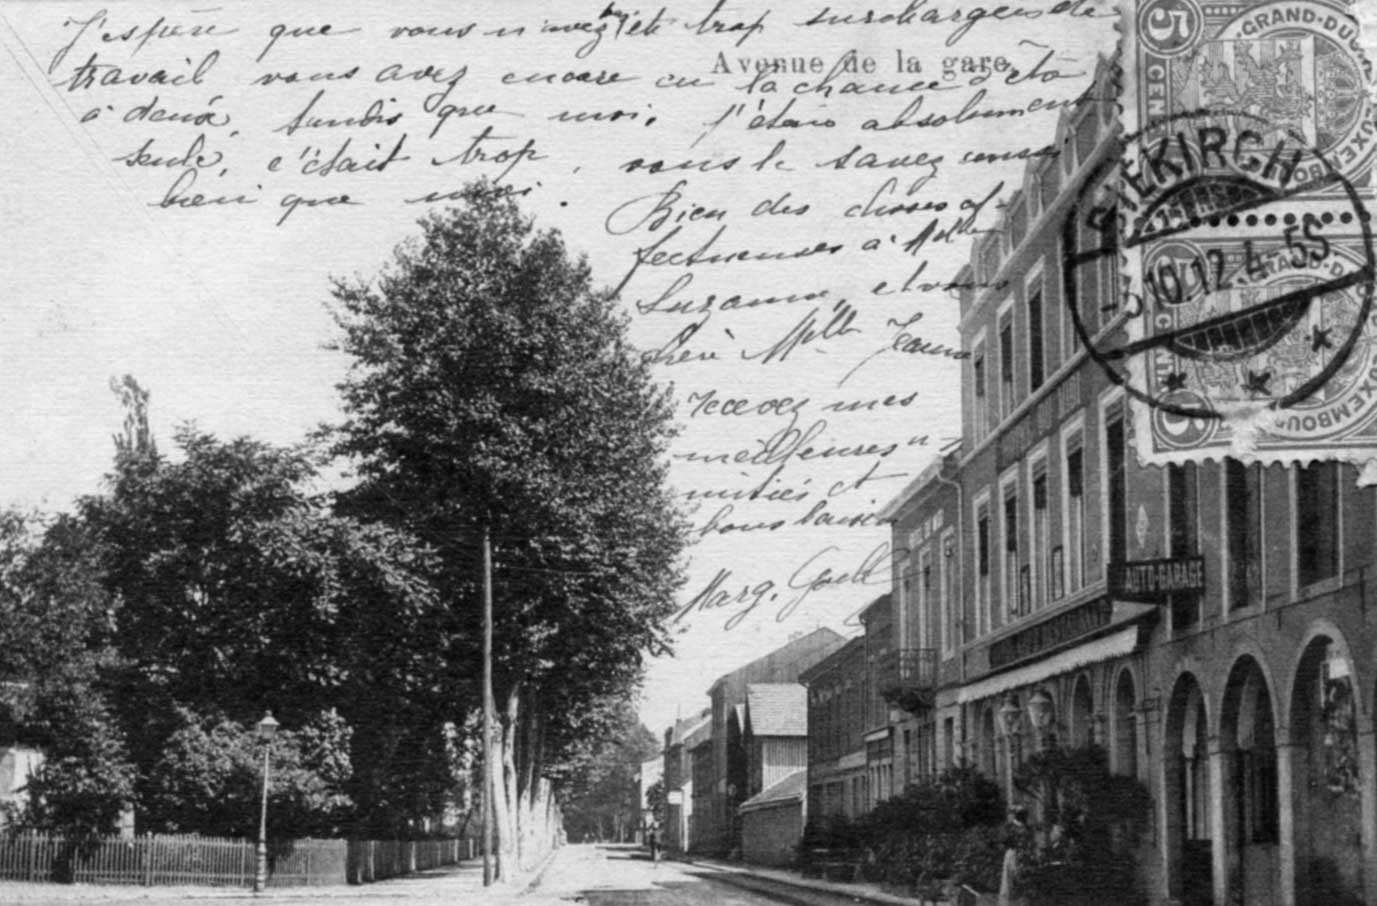 J'espère que vous n'avez pas été trop surchargées de
travail vous avez encore eu la chance d'être
à deux, tandis que moi, j'étais absolument
seule, c'était trop, vous le savez aussi
bien que moi.
Bien des choses af-
fectueuses à Mlle
Suzanne, et vous
chère Mlle Jeanne
recevez mes
meilleures a-
mitiés et
bons baisers
Marg.
Avenue de la gare
5 CEN
GRAND-DUCHÉ
LUXEMBOURG
DIEKIRCH
10.12.4-5S
5
LUXEMBOURG
AUTO-GARAGE
RESTAURANT